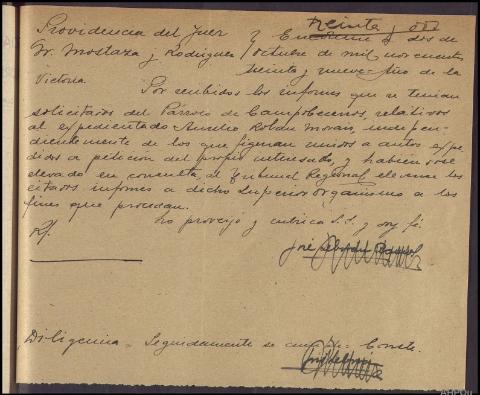 Providencia del Juez
Sr. Mostaza y Rodriguez
Victoria.
treinta y
y dos de
octubre de mil novecientos
treinta y nueve. Año de la
Por recibidos los informes que se tenian
solicitados del Párroco de Campobecerros, relativos
al expedientado Aurelio Roldan Morais, indepen-
dientemente de los que figuran unidos a autos expe
didos a peticion del propio interesado, y habiendose
elevado en consulta, al Tribunal Regional elevense los
citados informes a dicho Superior organismo a los
fines que procedan.
Lo proveyó y rubrica S.S. y doy fé.
R/.
José
Diligencia = Seguidamente se cumple. Consta.
AHPOu